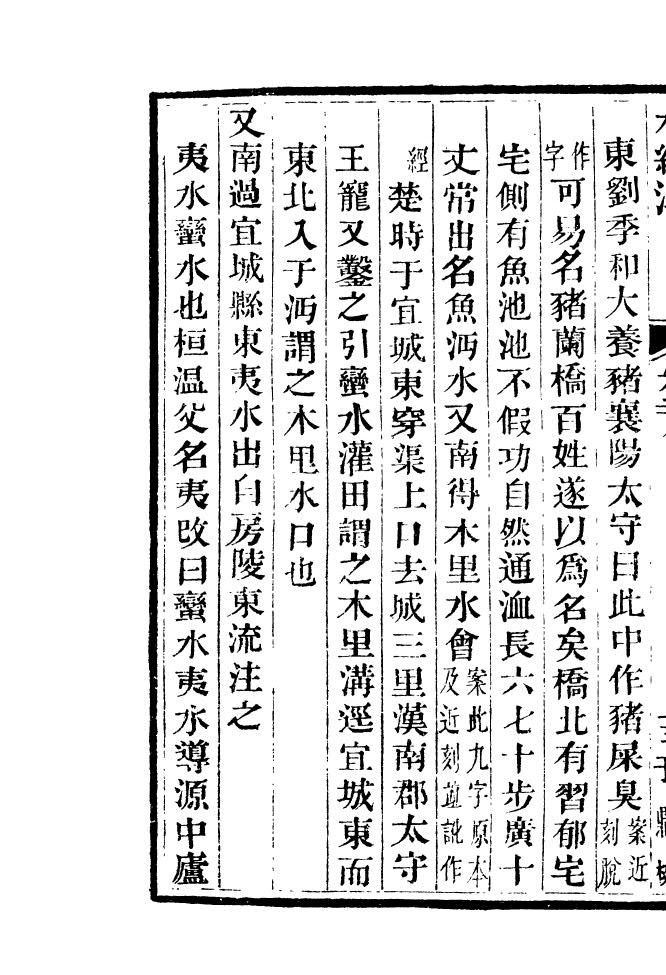 水經注
東劉季和大養豬襄陽太守曰此中作豬屎臭案近刻脫
作字可易名豬蘭橋百姓遂以爲名矣橋北有習郁宅
宅側有魚池池不假功自然通洫長六七十步廣十
丈常出名魚沔水又南得木里水會案此九字原本及近刻並訛作
經楚時于宜城東穿渠上口去城三里漢南郡太守
王寵又鑿之引蠻水灌田謂之木里溝逕宜城東而
東北入于沔謂之木里水口也
又南過宜城縣東夷水出自房陵東流注之
夷水蠻水也桓温父名夷改曰蠻水夷水導源中廬